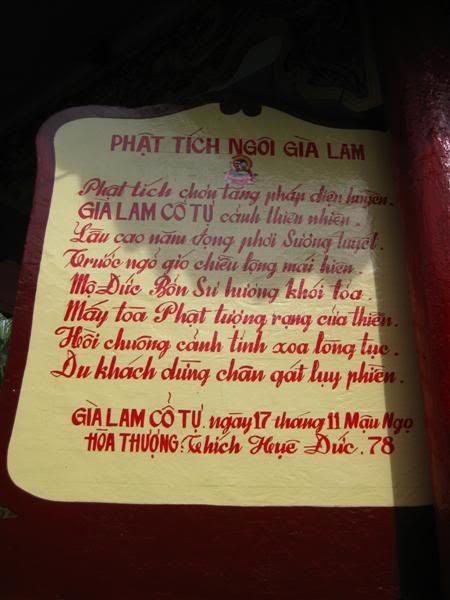 PHẬT TÍCH NGÔI GIÀ LAM
Phật tích chơn tàng pháp diệu huyền.
GIÀ LAM CỔ TỰ cảnh thiên nhiên.
Lầu cao năm đọng phơi Sương tuyết.
Trước ngỏ gió chiều lộng mái hiên.
Mộ Đức Bổn Sư hương khói tỏa.
Mấy tòa Phật tượng rạng cửa thiền.
Hồi chuông cảnh tỉnh xoa lòng tục.
Du khách dừng chân gát lụy phiền.
GIÀ LAM CỔ TỰ. ngày 17 tháng 11 Mậu Ngọ
HÒA THƯỢNG: Thích Huệ Đức. 78